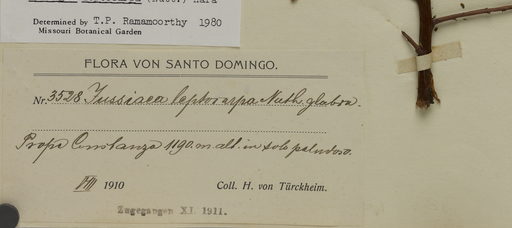 (Nutt.) Hara
Determined by T.P. Ramamoorthy 1980
Missouri Botanical Garden
FLORA VON SANTO DOMINGO.
Nr. 3528 Jussiaea leptocarpa Nutt. glabra.
Prope Constanza 1190 m. alt. in solo paludoso.
VIII 1910 Coll. H. von Türckheim.
Zugegangen XI. 1911.